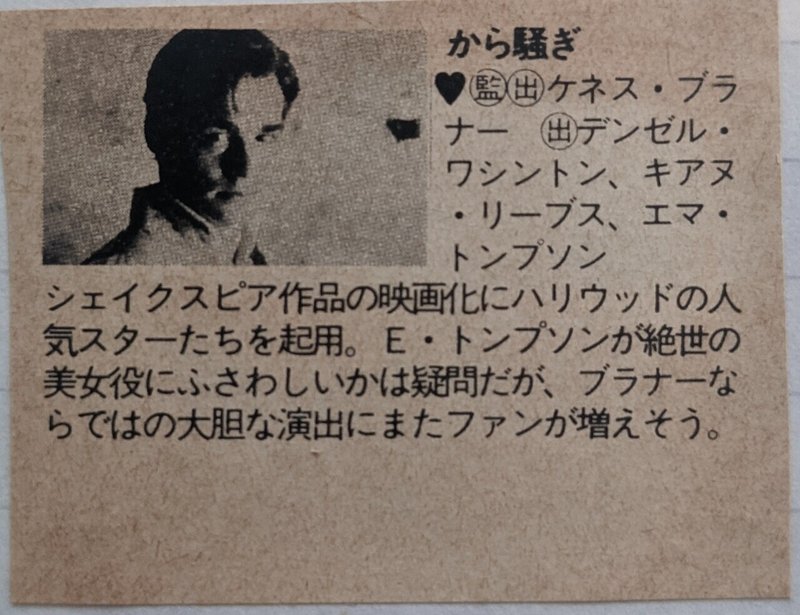 から騒ぎ
♥㊩㊓ケネス・ブラ
ナー　㊓デンゼル・
ワシントン、キアヌ
・リーブス、エマ・
トンプソン
シェイクスピア作品の映画化にハリウッドの人
気スターたちを起用。E・トンプソンが絶世の
美女役にふさわしいかは疑問だが、ブラナーな
らではの大胆な演出にまたファンが増えそう。